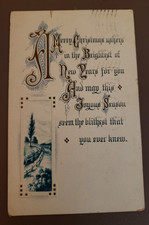 A Merry Christmas wishes
in the Brightest of
New Years for you
And may this
Joyous Season
seem the blithest that
you ever knew.